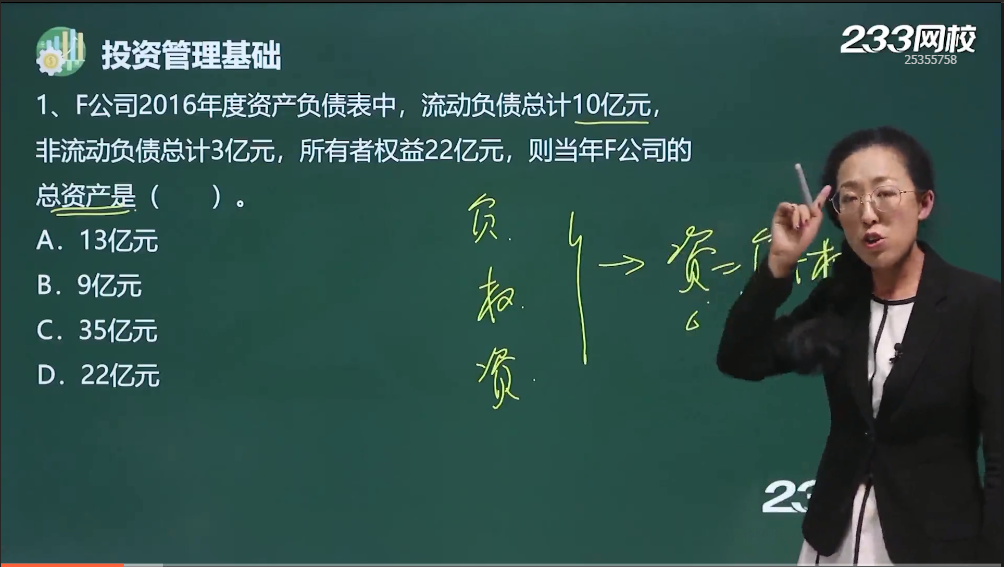 投资管理基础
233网校
25355758
1、F公司2016年度资产负债表中，流动负债总计10亿元，
非流动负债总计3亿元，所有者权益22亿元，则当年F公司的
总资产是（　　）。
A．13亿元
B．9亿元
C．35亿元
D．22亿元
负．
权．
资．
→ 资=负+权
23